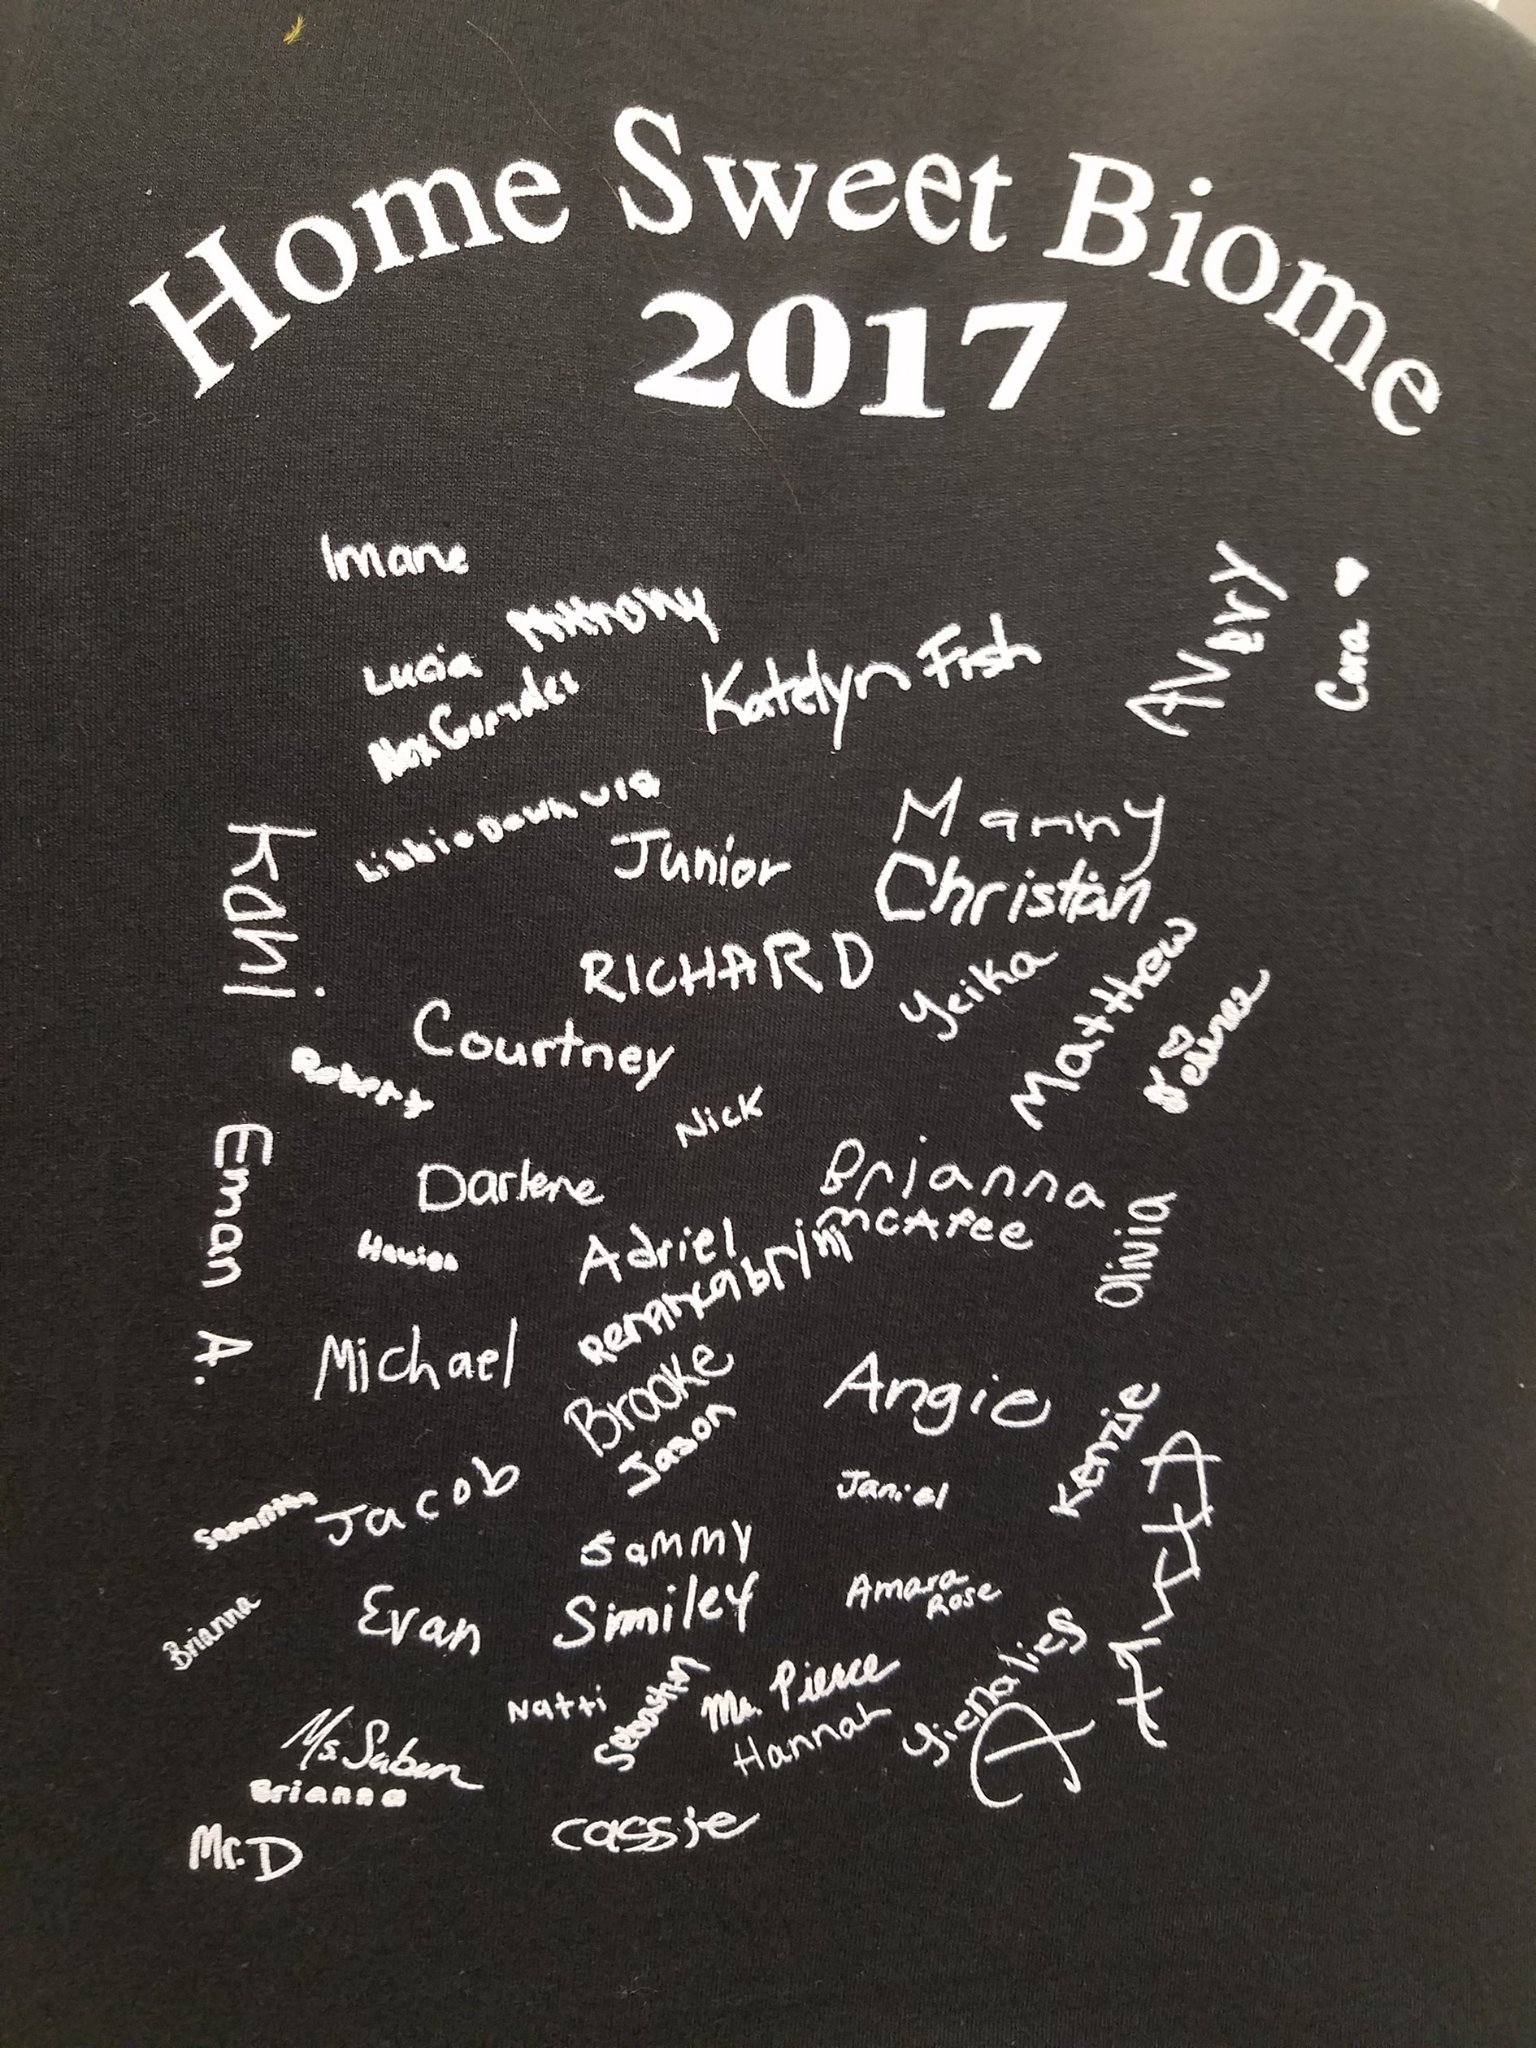 Home Sweet Biome
2017
Imane
Anthony
Lucia
Katelyn Fish
Avery
Cara
Libbie Dawn
Kani
Junior
Manny
Christian
RICHARD
Yeika
Matthew
Courtney
Robert
Nick
Eman A.
Darlene
Brianna
McAfee
Olivia
Adriel
Michael
Brooke
Jason
Angie
Kenzie
Jacob
Janiel
Sammy
Brianna
Evan
Similey
Amara
Rose
Natti
Sebastin
Ms. Pierce
Hannah
Yienalies
Ms. Saben
Brianna
Mr. D
cassie